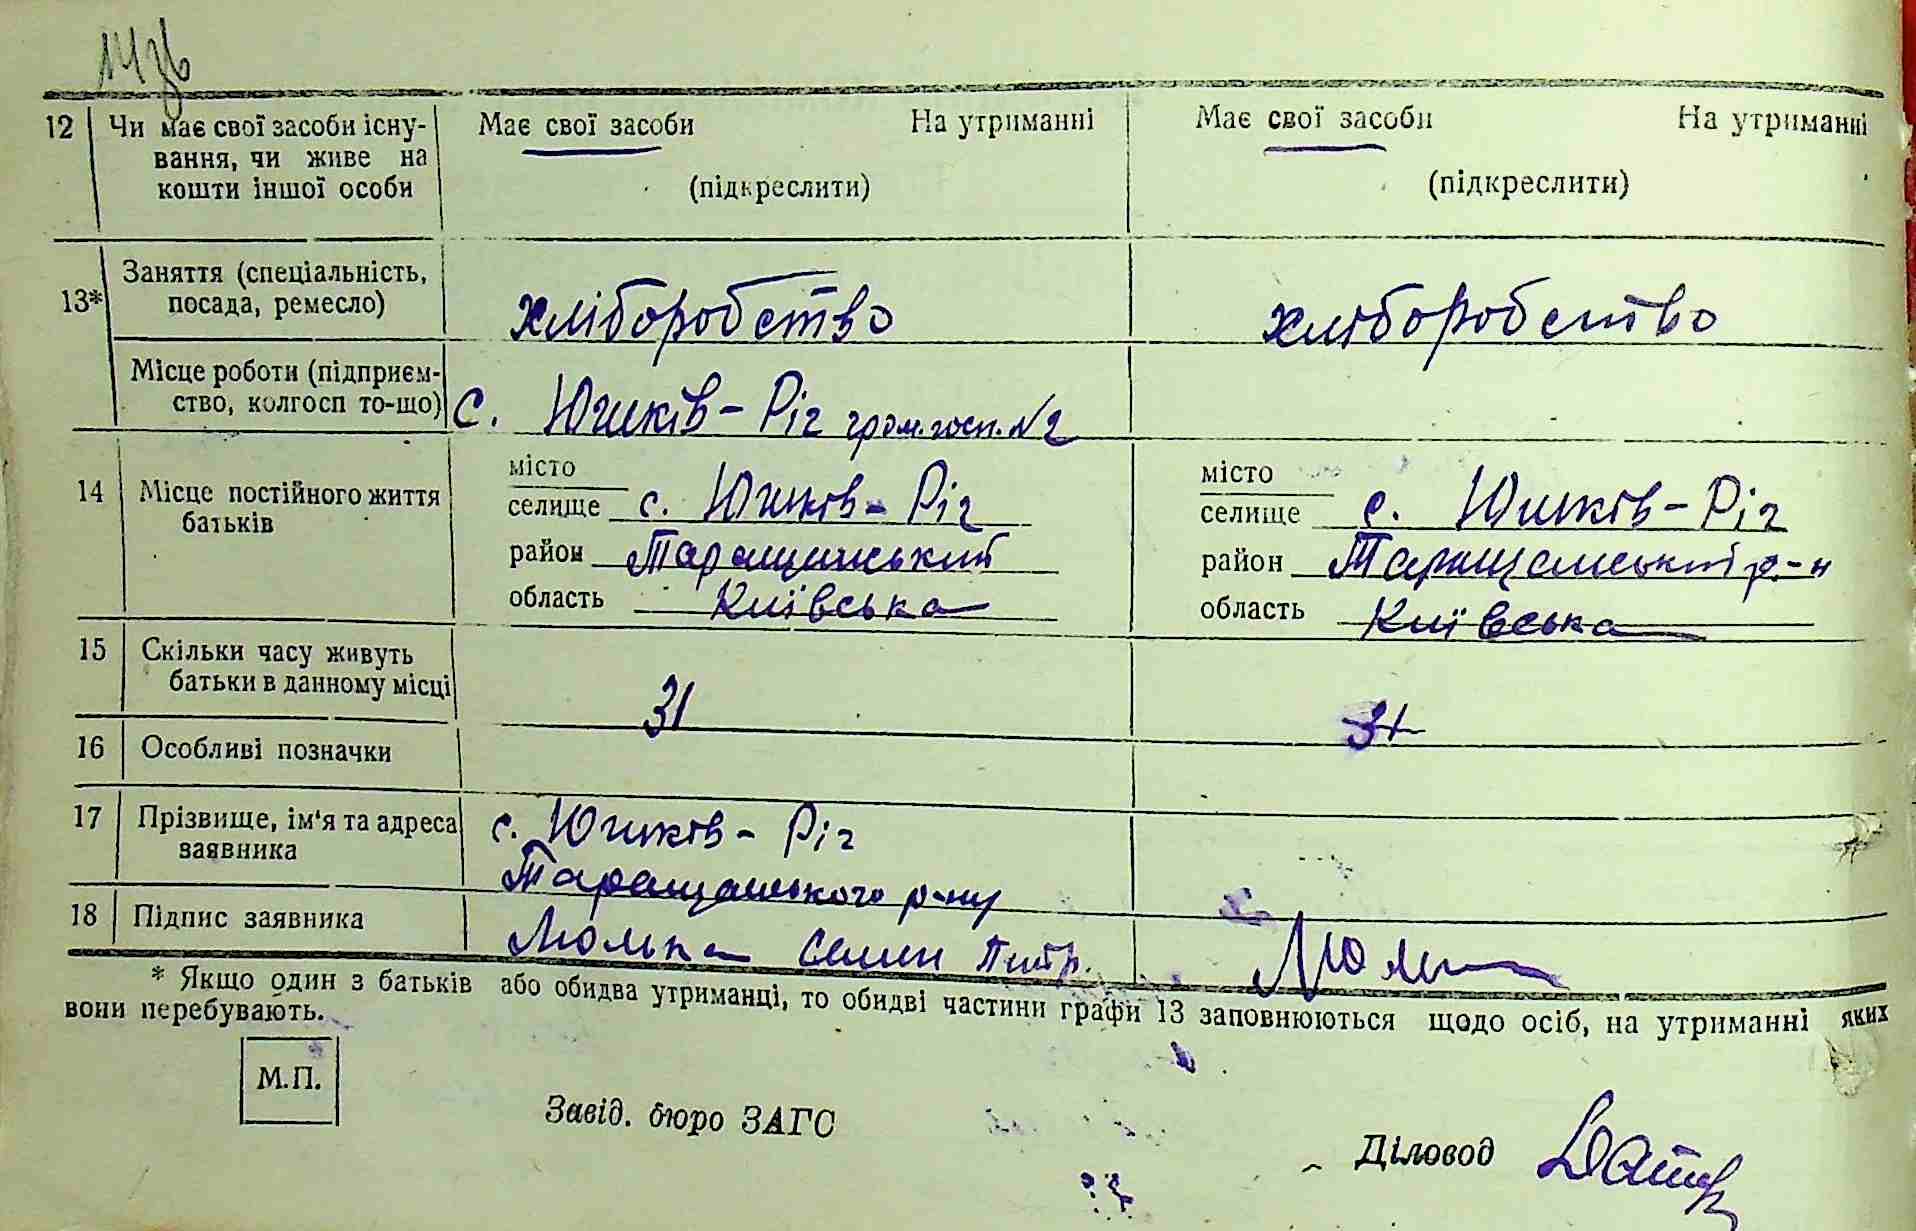 14зв
12 Чи має свої засоби існу- Має свої засоби На утриманні Має свої засоби На утриманні
вання, чи живе на
кошти іншої особи (підкреслити) (підкреслити)
13* Заняття (спеціальність,
посада, ремесло) хліборобство хліборобство
Місце роботи (підприєм-
ство, колгосп то-що) с. Юшків-Ріг гром. госп. №2
14 Місце постійного життя
батьків
місто місто
селище с. Юшків-Ріг селище с. Юшків-Ріг
район Таращанський район Таращанський р-н
область Київська область Київська
15 Скільки часу живуть
батьки в данному місці 31 31
16 Особливі позначки
17 Прізвище, ім'я та адреса с. Юшків-Ріг
заявника Таращанського р-ну
18 Підпис заявника Люлька Семен Петр.
* Якщо один з батьків або обидва утриманці, то обидві частини графи 13 заповнюються щодо осіб, на утриманні яких
вони перебувають.
М.П.
Завід. бюро ЗАГС
Діловод